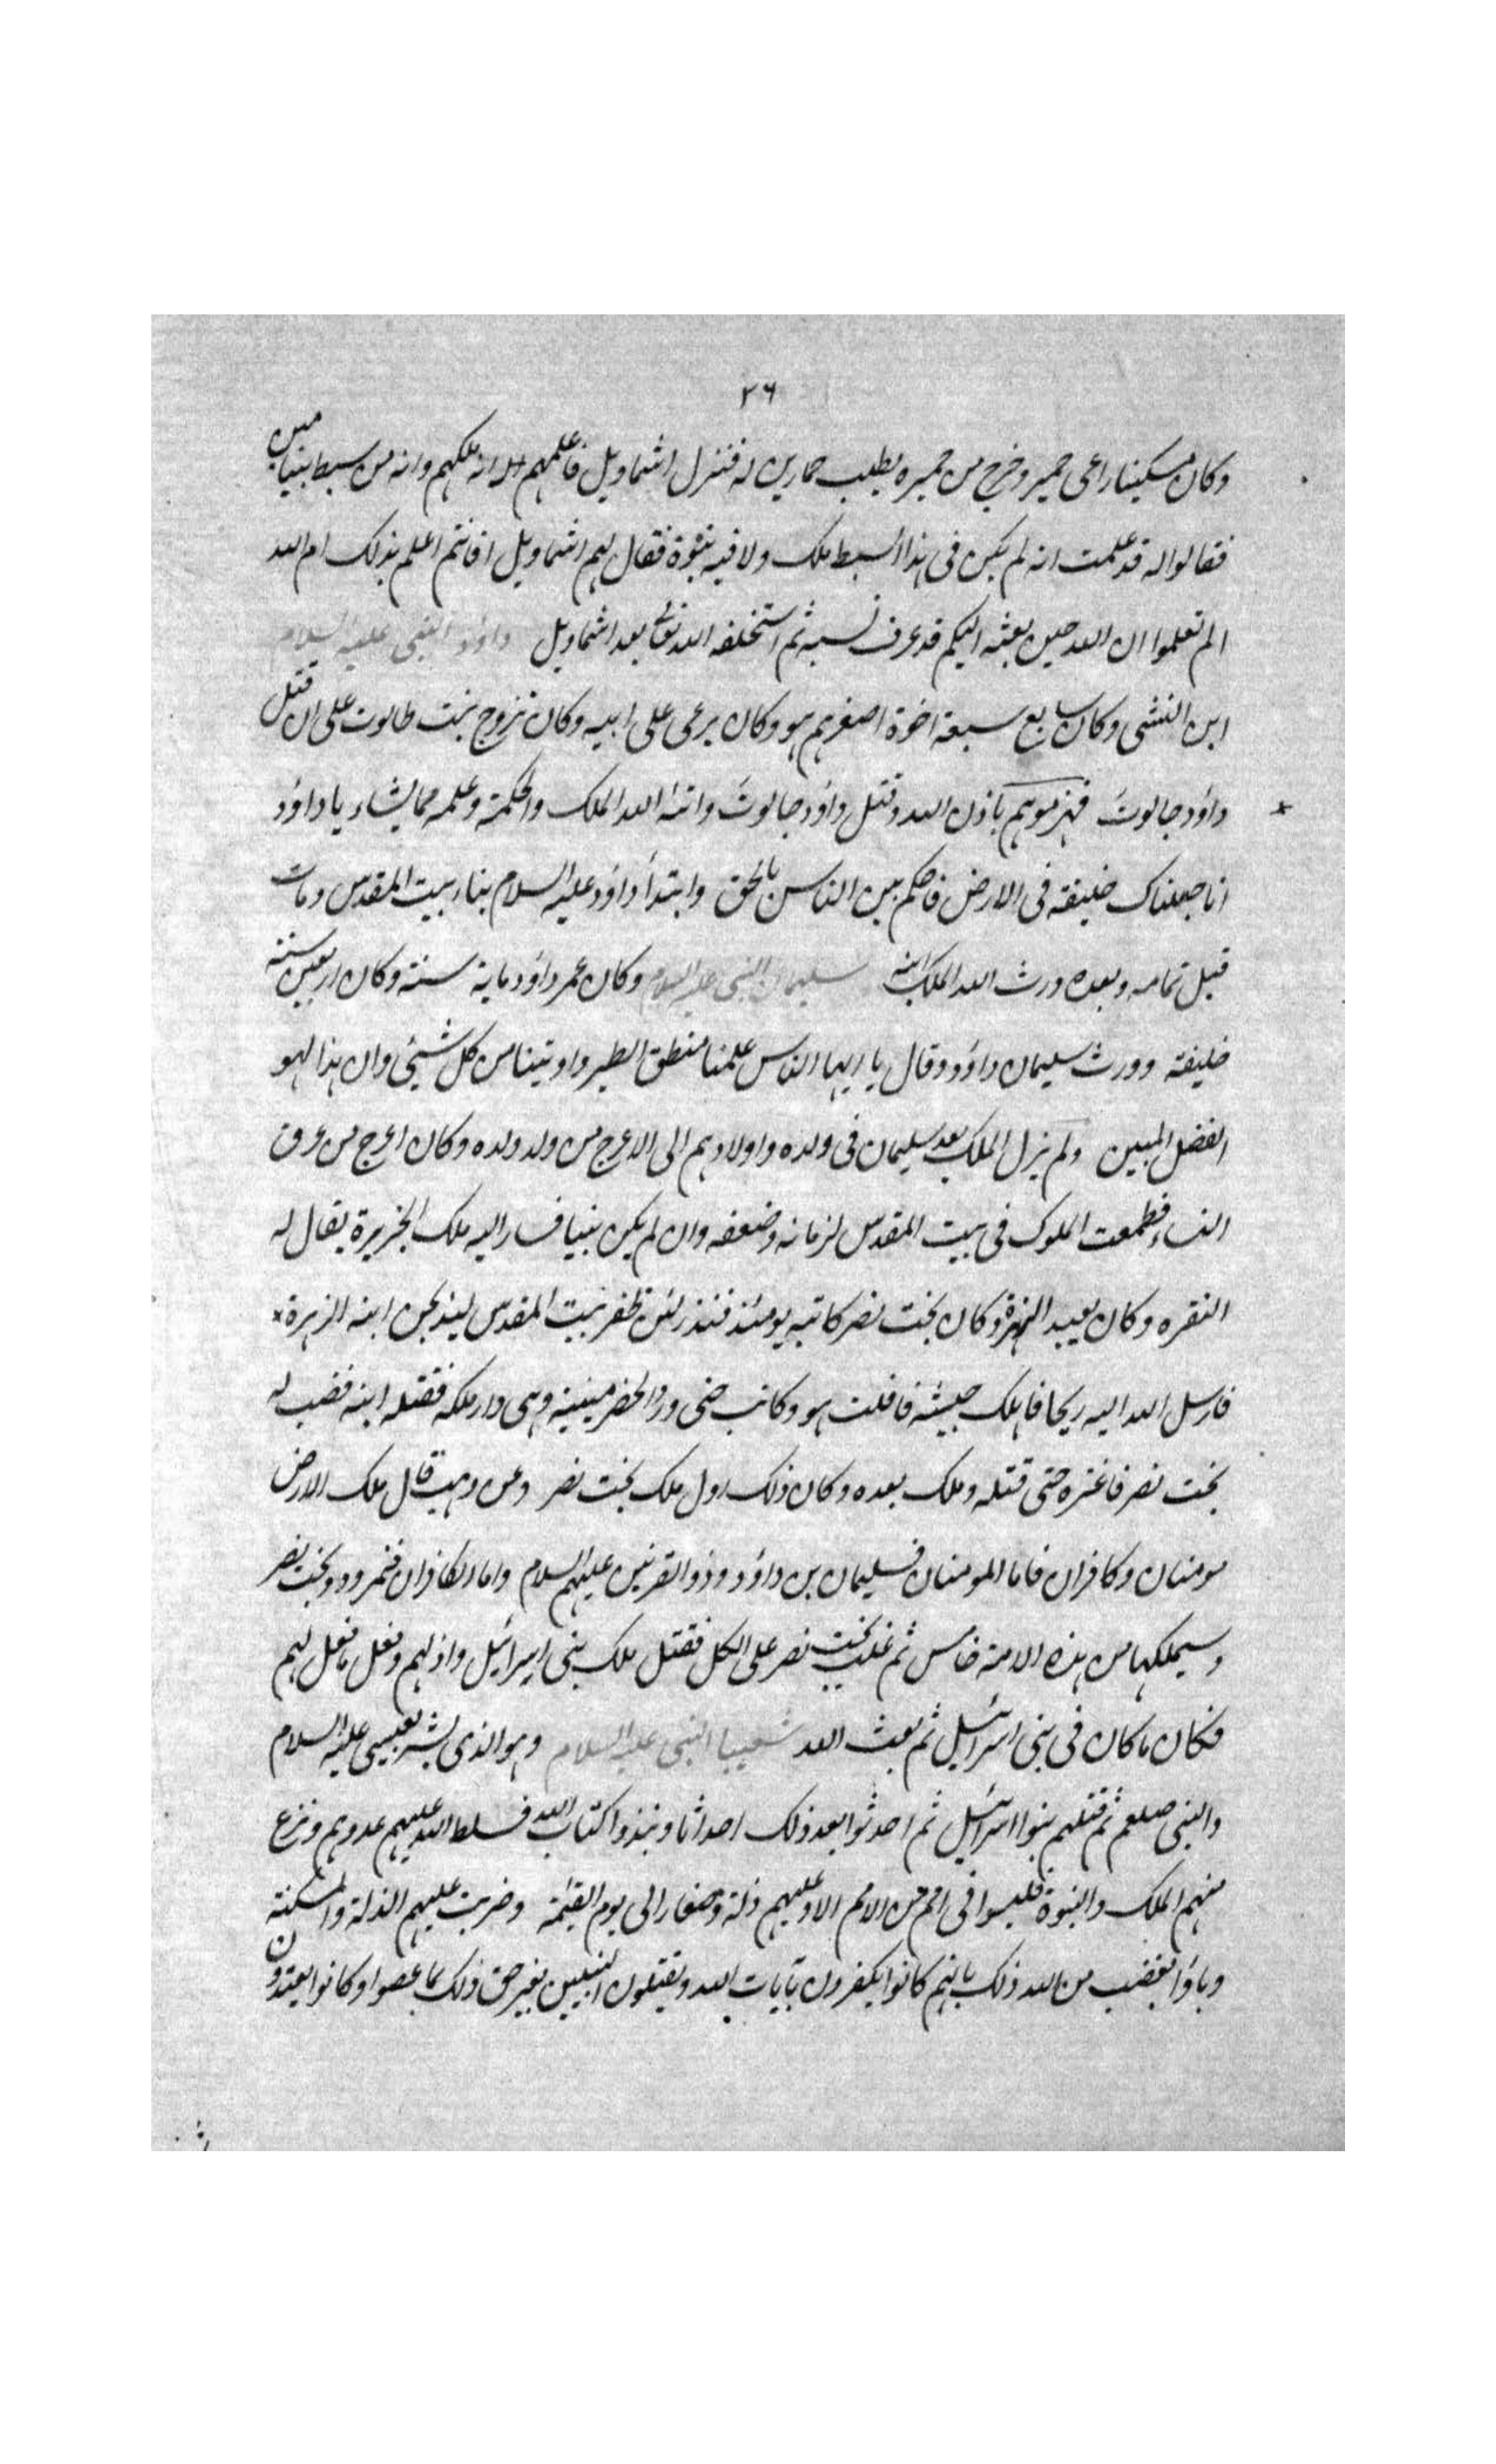 ٢٦
وكان مسكينا راعى حمير وخرج من حميره يطلب حمارين له فنزل اشماويل فاعلمهم انه ملكهم وانه من سبط بنيامين
فقالوا له قد علمت انه لم يكن فى هذا السبط ملك ولا فيه نبوة فقال لهم اشماويل افانتم اعلم بذلك ام الله
الم تعلموا ان الله حين بعثه اليكم قد عرف نسبه ثم استخلفه الله تعالى بعد اشماويل داؤد النبى عليه السلام
ابن النشى وكان سابع سبعة اخوة اصغرهم هو وكان يرعى على ابيه وكان تزوج بنت طالوت على ان قتل
داؤد جالوت فهزموهم باذن الله وقتل داؤد جالوت واتىه الله الملك والحكمة وعلمه مما يشاء يا داؤد
انا جعلناك خليفة فى الارض فاحكم بين الناس بالحق وابتدأ داؤد عليه السلام بناء بيت المقدس ومات
قبل تمامه وبعده ورث الله الملك ابنه سليمان النبى عليه السلام وكان عمر داؤد ماية سنة وكان اربعين سنة
خليفة وورث سليمان داؤد وقال يا ايها الناس علمنا منطق الطير واوتينا من كل شيئ وان هذا لهو
الفضل المبين ولم يزل الملك بعد سليمان فى ولده واولادهم الى الاعرج من ولد ولده وكان اعرج من عرق
النساء فطمعت الملوك فى بيت المقدس لزمانه وضعفه وان لم يكن نبيا فسار اليه ملك الجزيرة يقال له
النقره وكان يعبد الزهرة وكان بخت نصر كاتبه يومئذ فنذر لئن ظفر ببيت المقدس ليذبحن ابنه الزهرة
فارسل الله اليه ريحا فاهلك جيشه فافلت هو وكاتبه حتى ورد الخضر مينية وهى دار ملكه فقتله ابنه فغضب له
بخت نصر فاغتره حتى قتله وملك بعده وكان ذلك اول ملك بخت نصر وعن وهب قال ملك الارض
مومنان وكافران فاما المومنان فسليمان بن داؤد وذو القرنين عليهم السلام واما الكافران فنمرود وبخت نصر
وسيملكها من هذه الامة خامس ثم غلب بخت نصر على الكل فقتل ملك بنى اسرائيل واذلهم وفعل ما فعل لهم
فكان ما كان فى بنى اسرائيل ثم بعث الله شعيبا النبى عليه السلام وهو الذى بشر بعيسى عليه السلام
والنبى صلعم ثم قتلهم بنوا اسرائيل ثم احدثوا بعد ذلك احداثا ونبذوا كتاب الله فسلط الله عليهم عدوهم ونزع
منهم الملك والنبوة فليسوا فى امم من الامم الا وعليهم ذلة وصغار الى يوم القيمة وضربت عليهم الذلة والمسكنة
وباؤا بغضب من الله ذلك بانهم كانوا يكفرون بآيات الله ويقتلون النبيين بغير حق ذلك بما عصوا وكانوا يعتدون